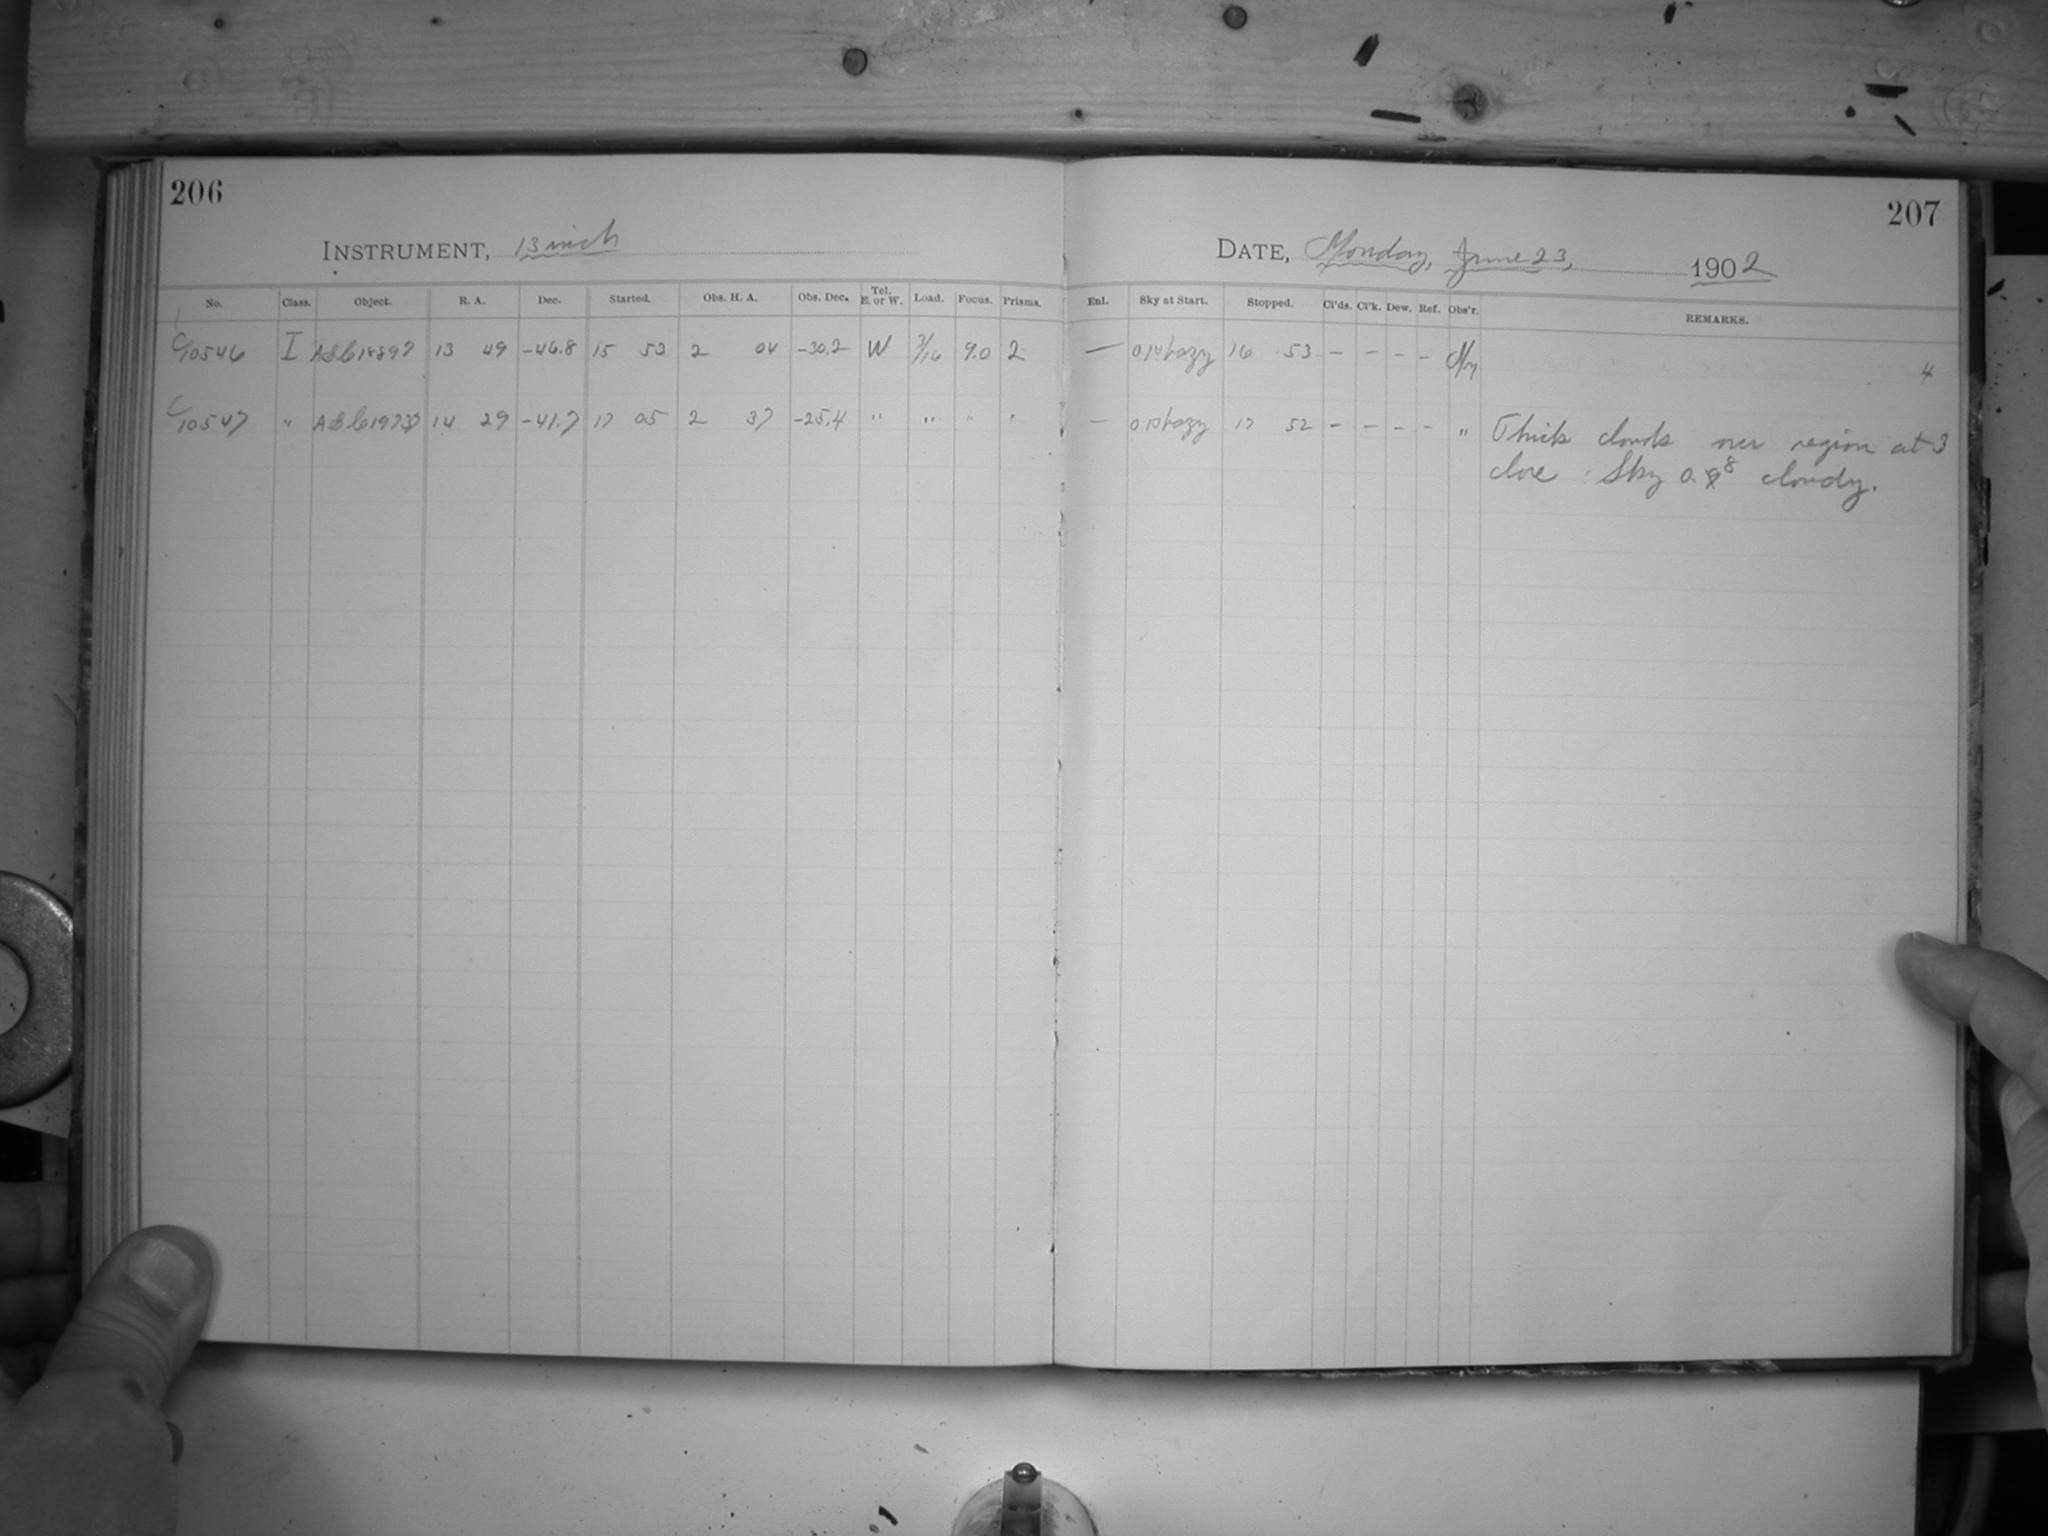 206
207
INSTRUMENT, 13 inch
DATE, Monday, June 23, 1902
No. Class. Object. R. A. Dec. Started. Obs. H. A. Obs. Dec. Tel. E. or W. Load. Focus. Prisms. Enl. Sky at Start. Stopped. Cl'ds. Cl'k. Dew. Ref. Obs'r. REMARKS.
C10546 I 13 49 -46.8 15 53 2 04 -30.2 W 3/16 9.0 2 — 16 53 - - - - 4
C10547 " 14 29 -41.7 17 05 2 37 -25.4 " " " " — 17 52 - - - - " Thick clouds over region at 3
close : Sky 0.8 cloudy.